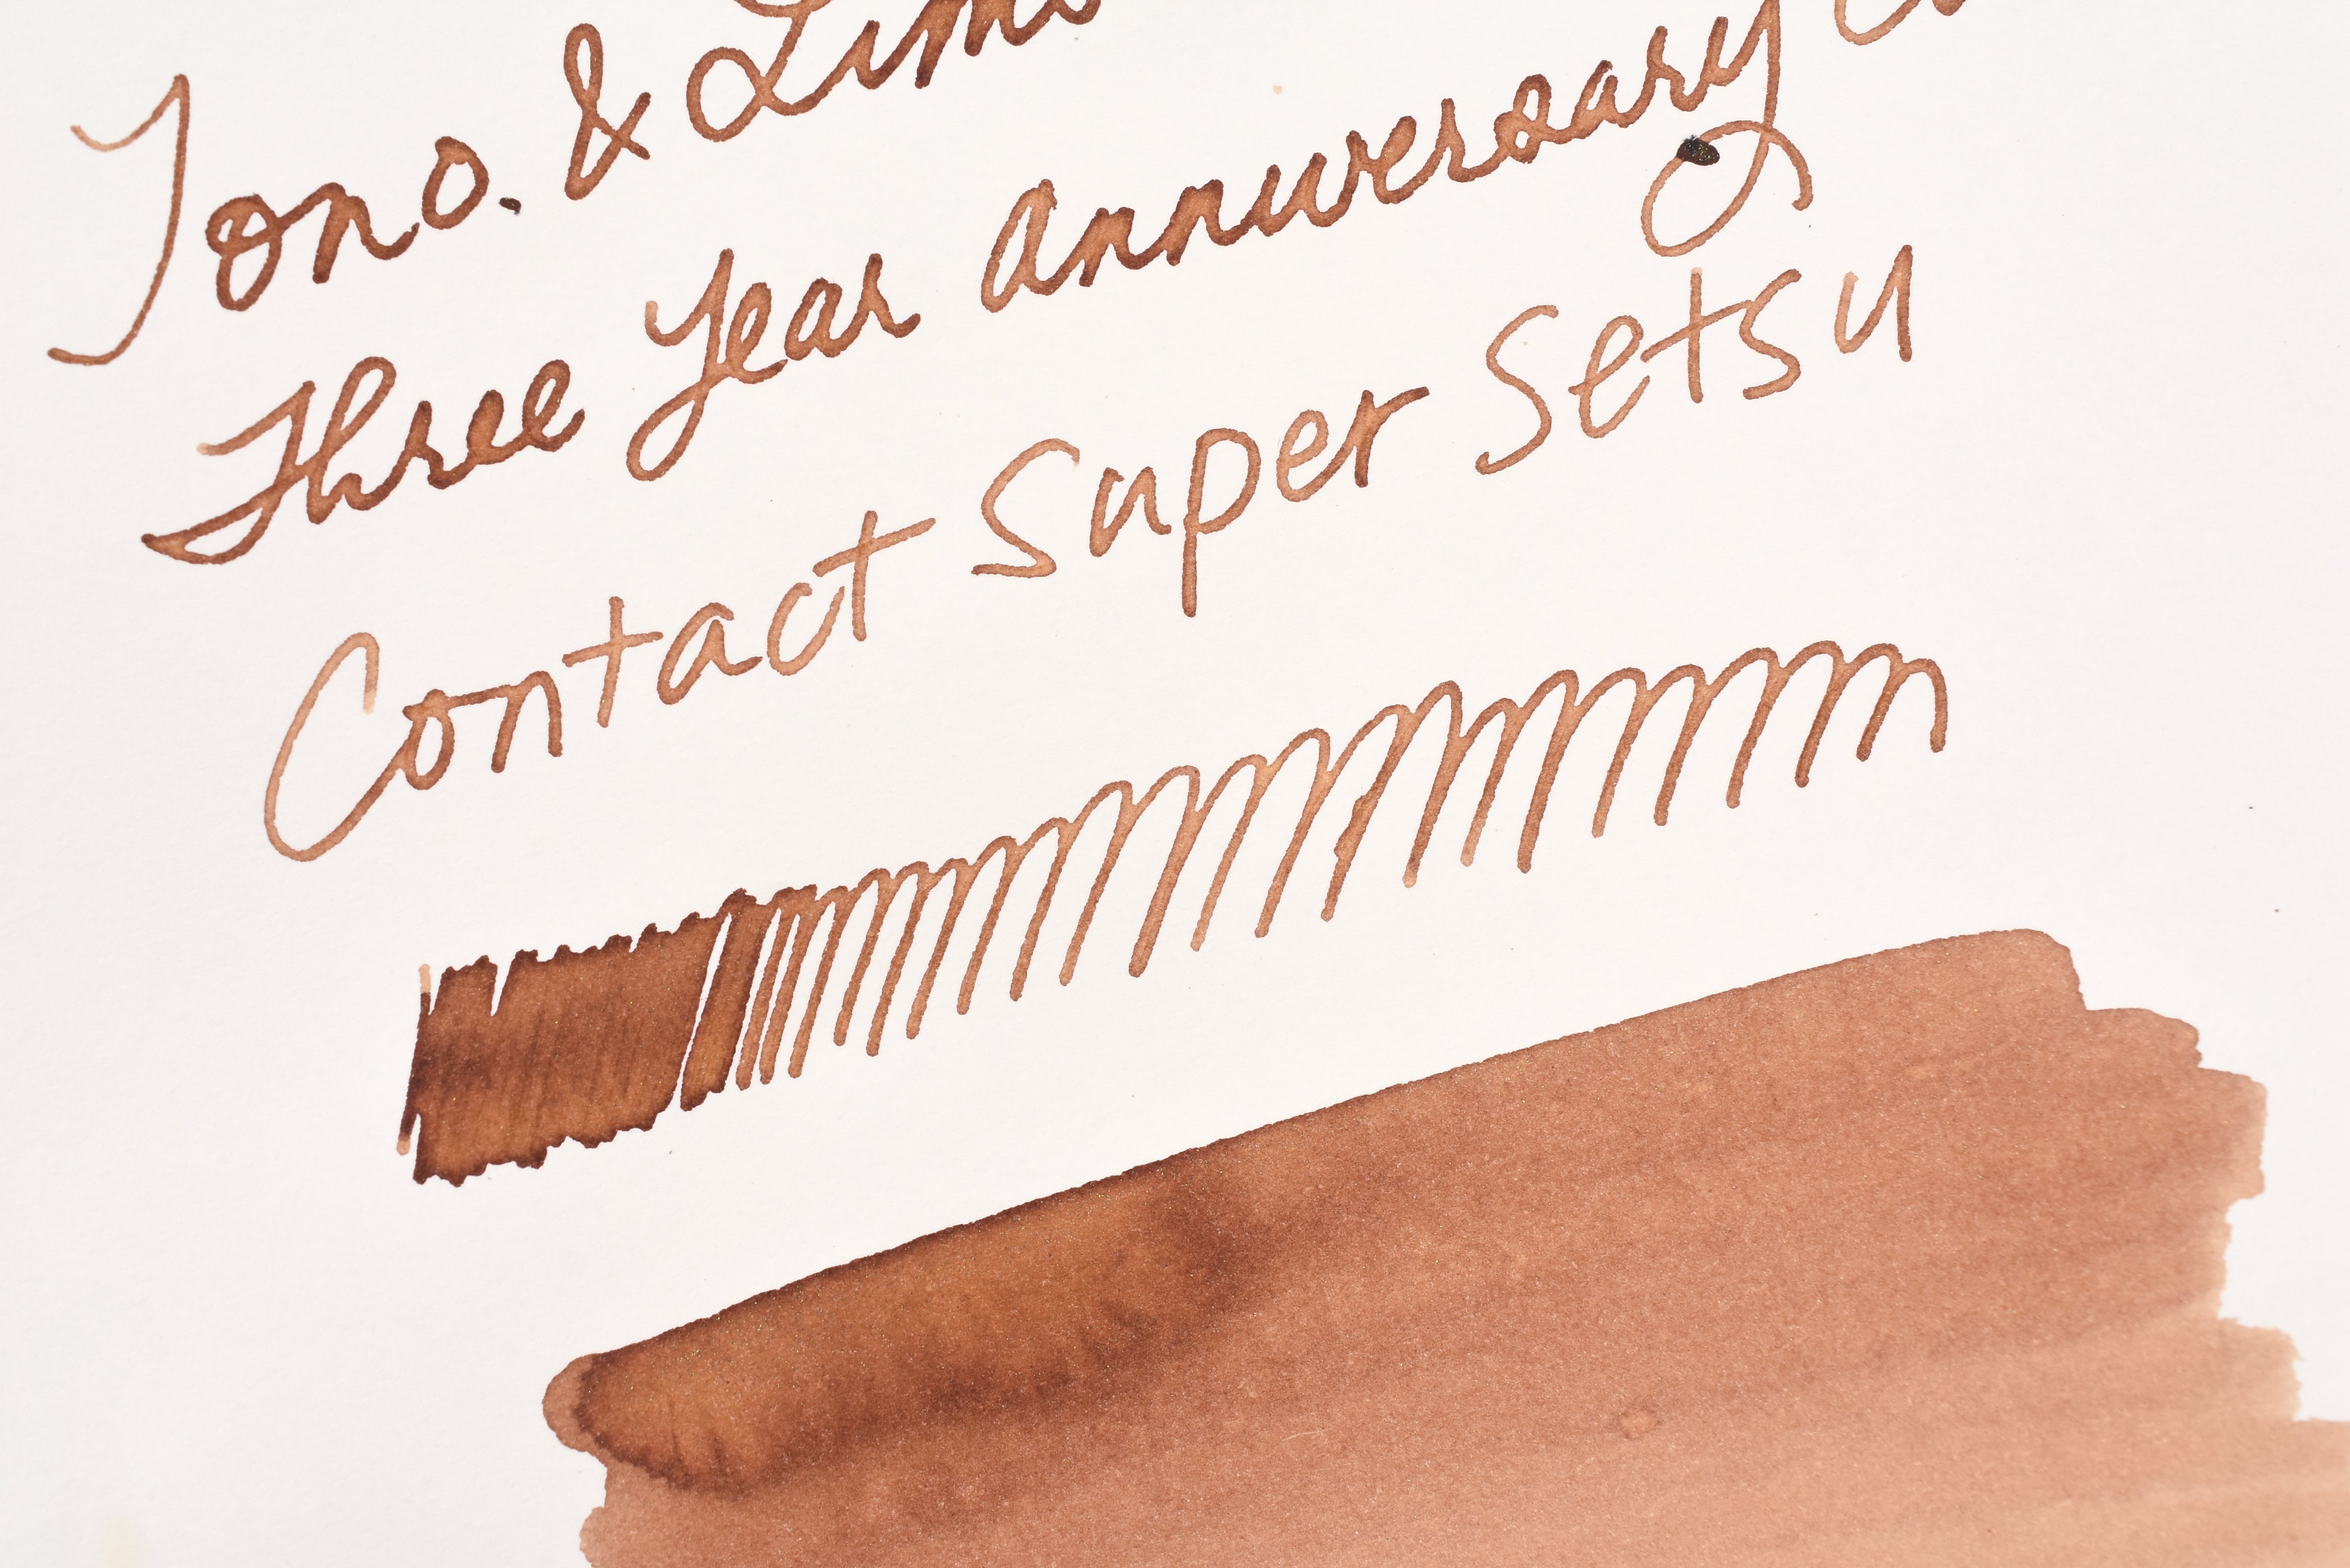 Tono. & Lims
Three Year Anniversary
Contact Super Setsu